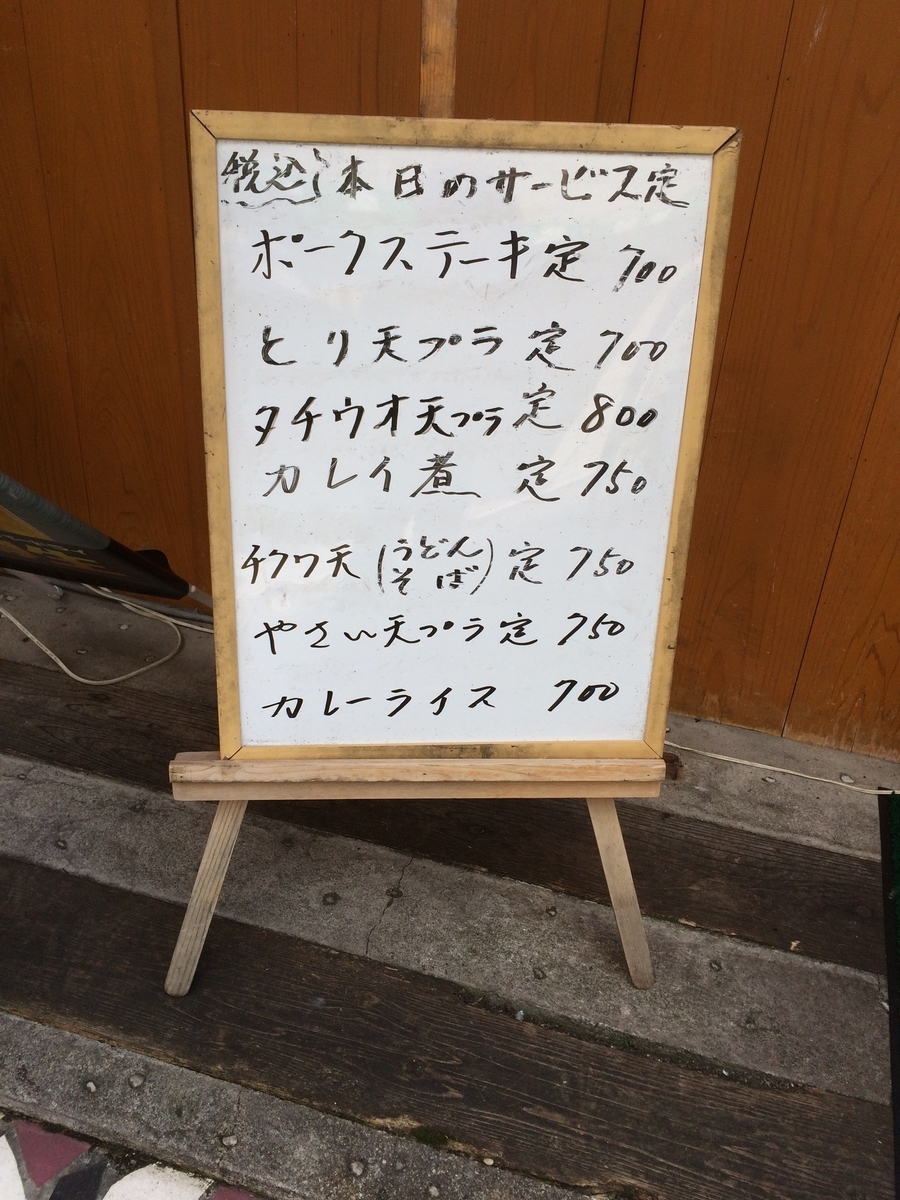 税込 本日のサービス定
ポークステーキ定 700
とり天プラ 定 700
タチウオ天プラ定 800
カレイ煮 定 750
チクワ天(うどん そば)定 750
やさい天プラ定 750
カレーライス 700